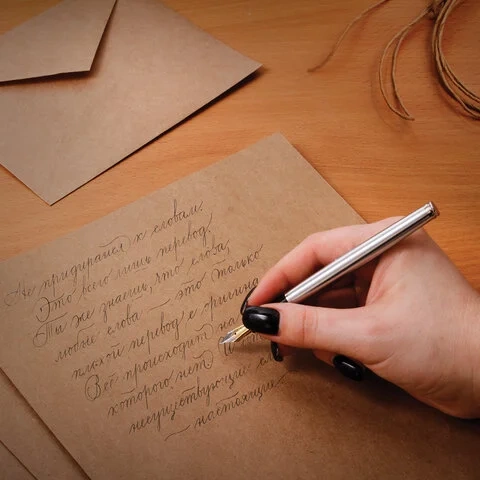 Не придирайся к словам.
Это всего лишь перевод.
Ты же знаешь, что слова,
любые слова — это только
плохой перевод с оригина
Всё происходит на
которого нет
несуществующие
— настоящие.